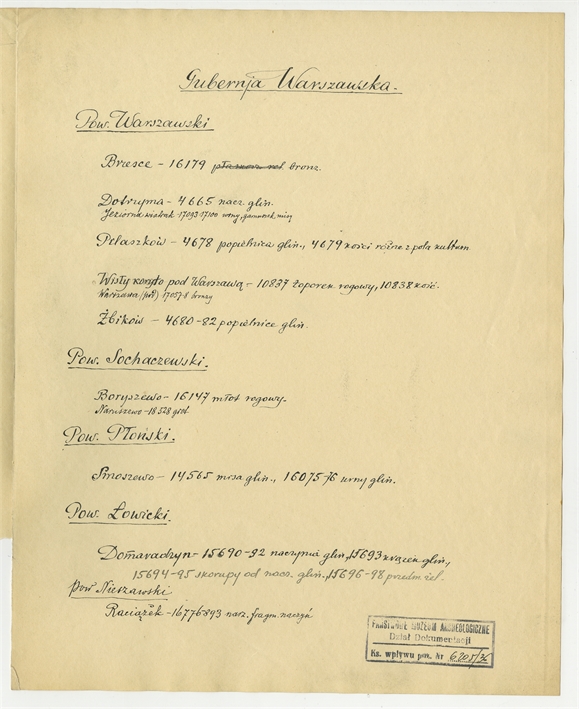 Gubernja Warszawska.
Pow. Warszawski
Briesce - 16179 bronz.
Dotrzyma - 4665 nacz. glin.
Jeziorna 17093-17100
Pełaszków - 4678 popielnica glin., 4679 kości różne z pola kultum
Wisły koryto pod Warszawą - 10837 toporek rogowy, 10838 kość.
Warszawa 17057-8 bronzy
Żbików - 4680-82 popielnice glin.
Pow. Sochaczewski.
Boryszewo - 16147 młot rogowy.
Naruszewo - 18528 grot
Pow. Płoński.
Smoszewo - 14565 misa glin., 16075-76 urny glin.
Pow. Łowicki.
Domaradzyn - 15690-92 naczynia glin., 15693 krążek glin.,
15694-95 skorupy od nacz. glin., 15696-98 przedm. żel.
Pow. Nieszawski
Raciążek - 16776-893 nacz. fragm. naczyń
PAŃSTWOWE MUZEUM ARCHEOLOGICZNE
Dział Dokumentacji
Ks. wpływu poz. Nr 6205/36